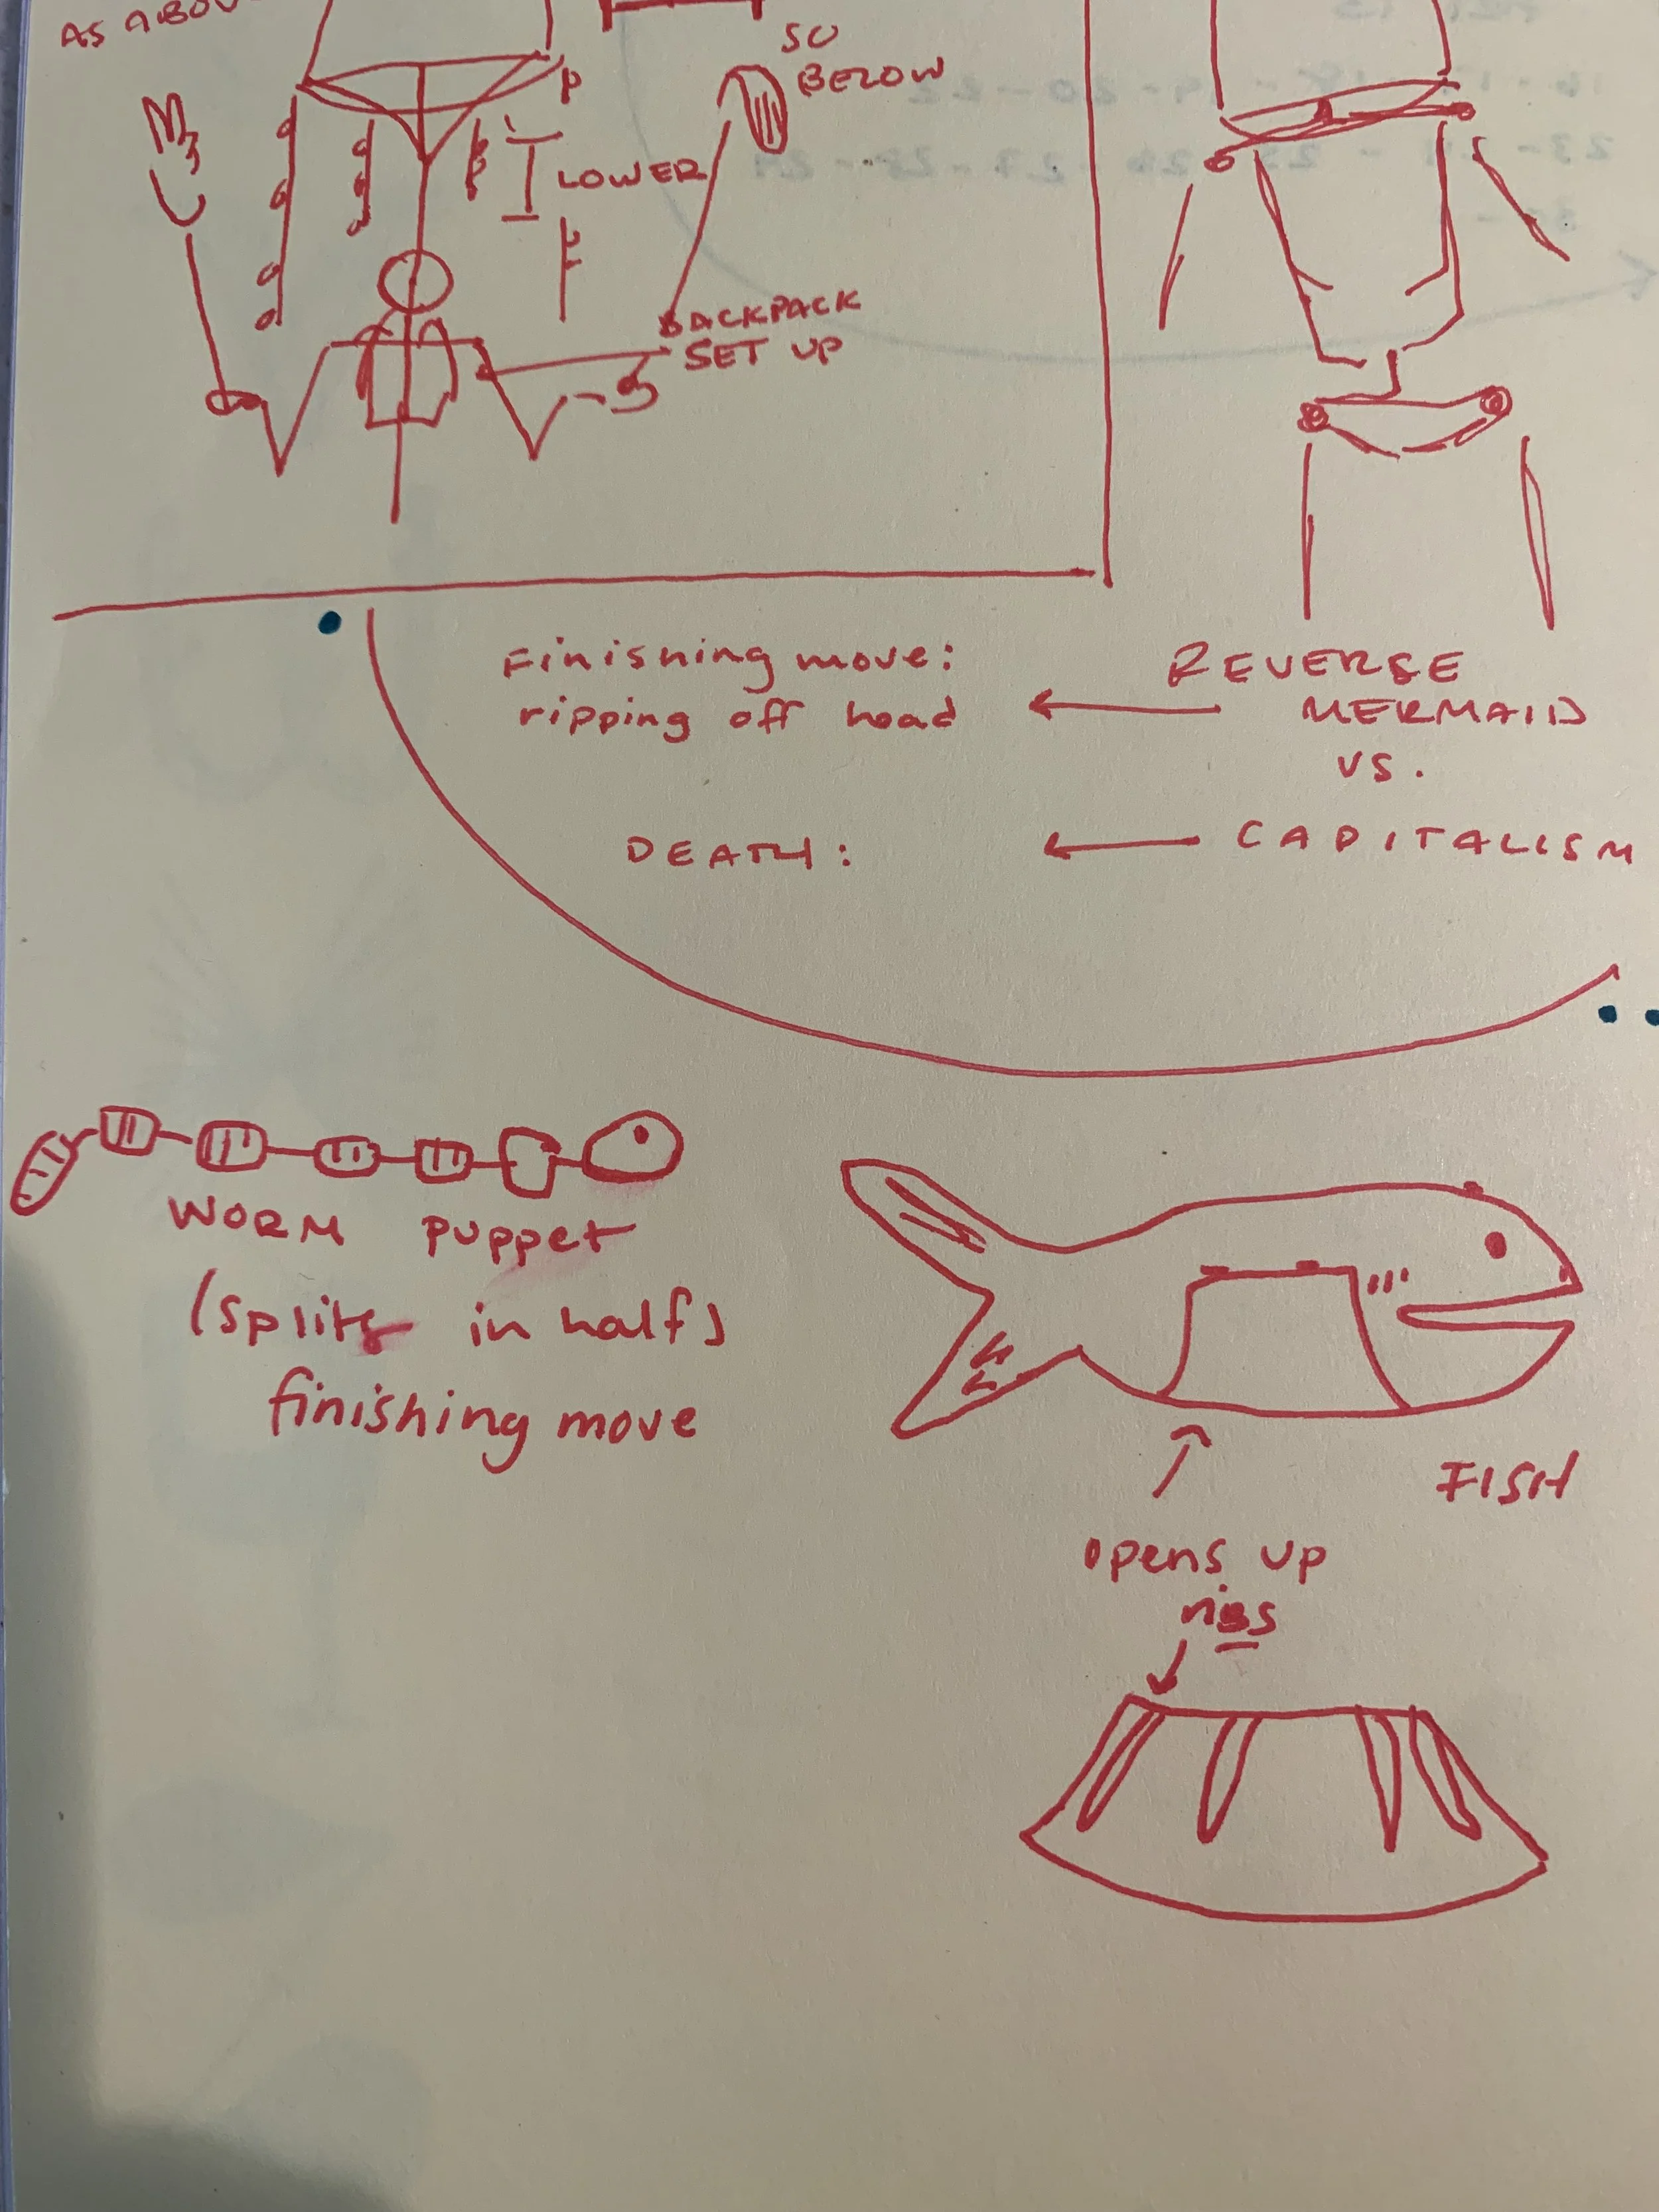 AS ABOV
SO
BELOW
P
LOWER
BACKPACK
SET UP
Finishing move:
ripping off head
REVERSE
MERMAID
VS.
DEATH:
CAPITALISM
WORM puppet
(splits in half)
finishing move
FISH
opens up
ribs